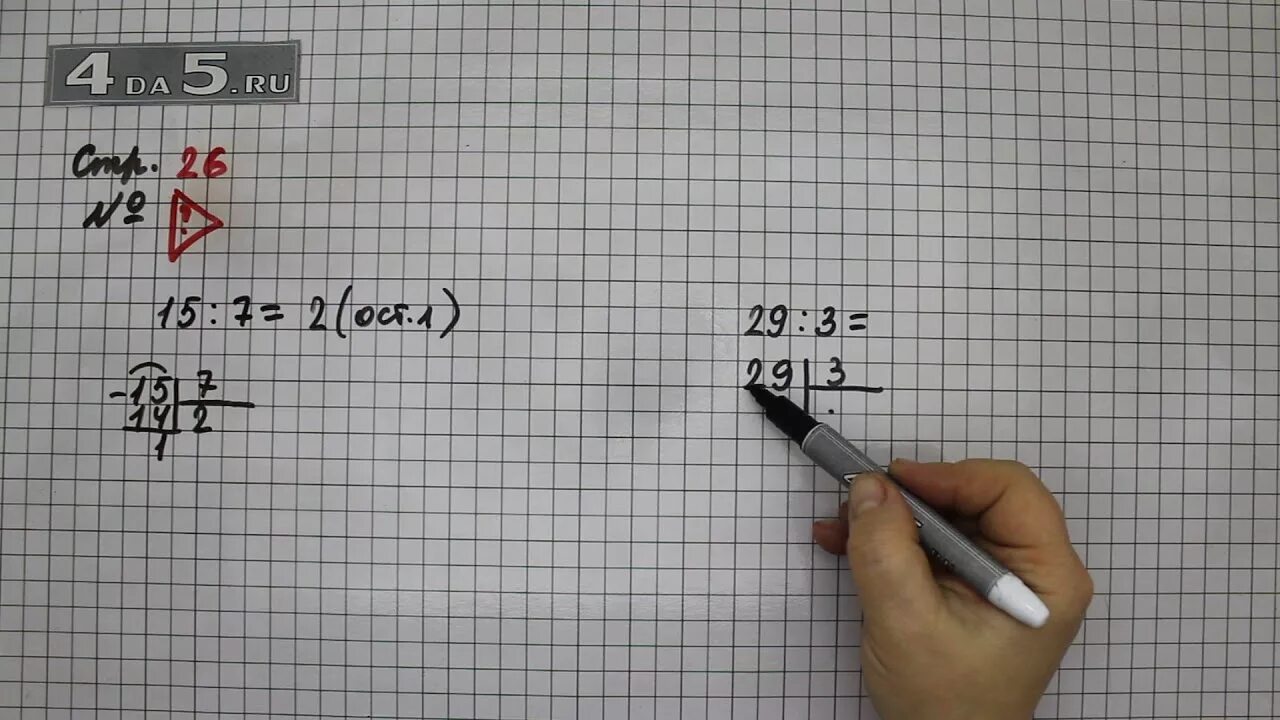 4 DA 5.RU
Стр. 26
№ !
15 : 7 = 2 (ост. 1)
- 15 | 7
14 | 2
1
29 : 3 =
29 | 3
.